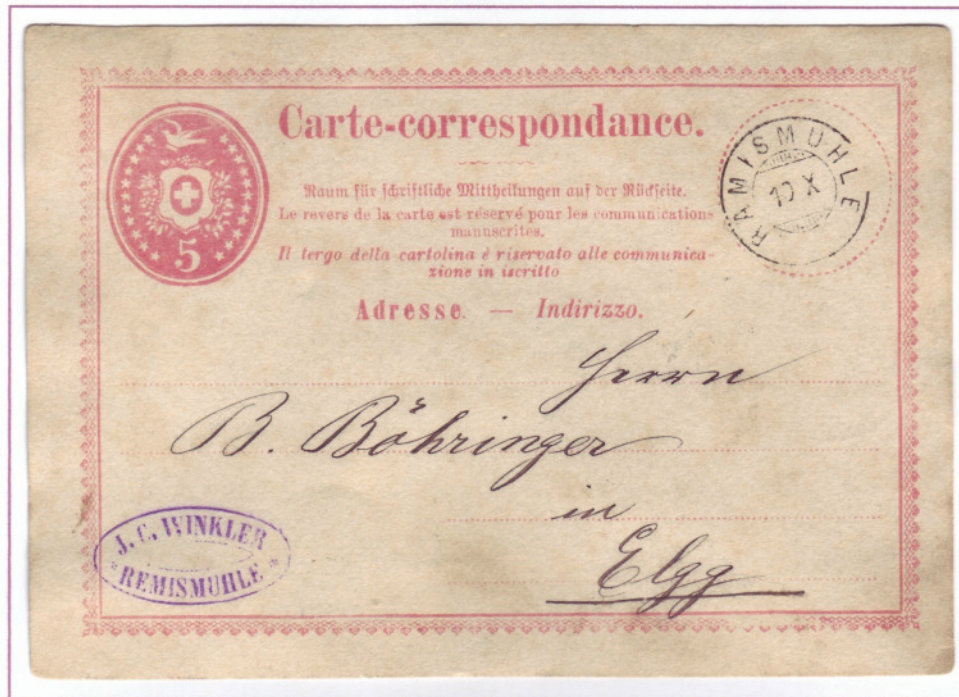 Carte-correspondance.
Raum für schriftliche Mittheilungen auf der Rückseite.
Le revers de la carte est réservé pour les communications
manuscrites.
Il tergo della cartolina è riservato alle communica-
zione in iscritto
5
RAMISMÜHLE
10 X
Adresse. — Indirizzo.
Herrn
B. Böhringer
in
Elgg
J. C. WINKLER
REMISMÜHLE